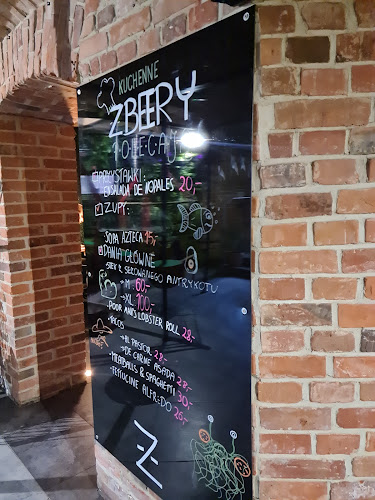 KUCHENNE
ZBEERY
POLECAJĄ
PRZYSTAWKI:
ENSALADA DE NOPALES 20,-
ZUPY:
SOPA AZTECA 15,-
DANIA GŁÓWNE
STEK Z SEZONOWANEGO ANTRYKOTU
→M 60,-
→XL 100,-
-POOR MAN'S LOBSTER ROLL 28.-
-TACOS
→AL PASTOR 28.-
→DE CARNE ASADA 28.-
-MEATBALLS & SPAGHETTI 30,-
-FETTUCINE ALFREDO 28,-
Z